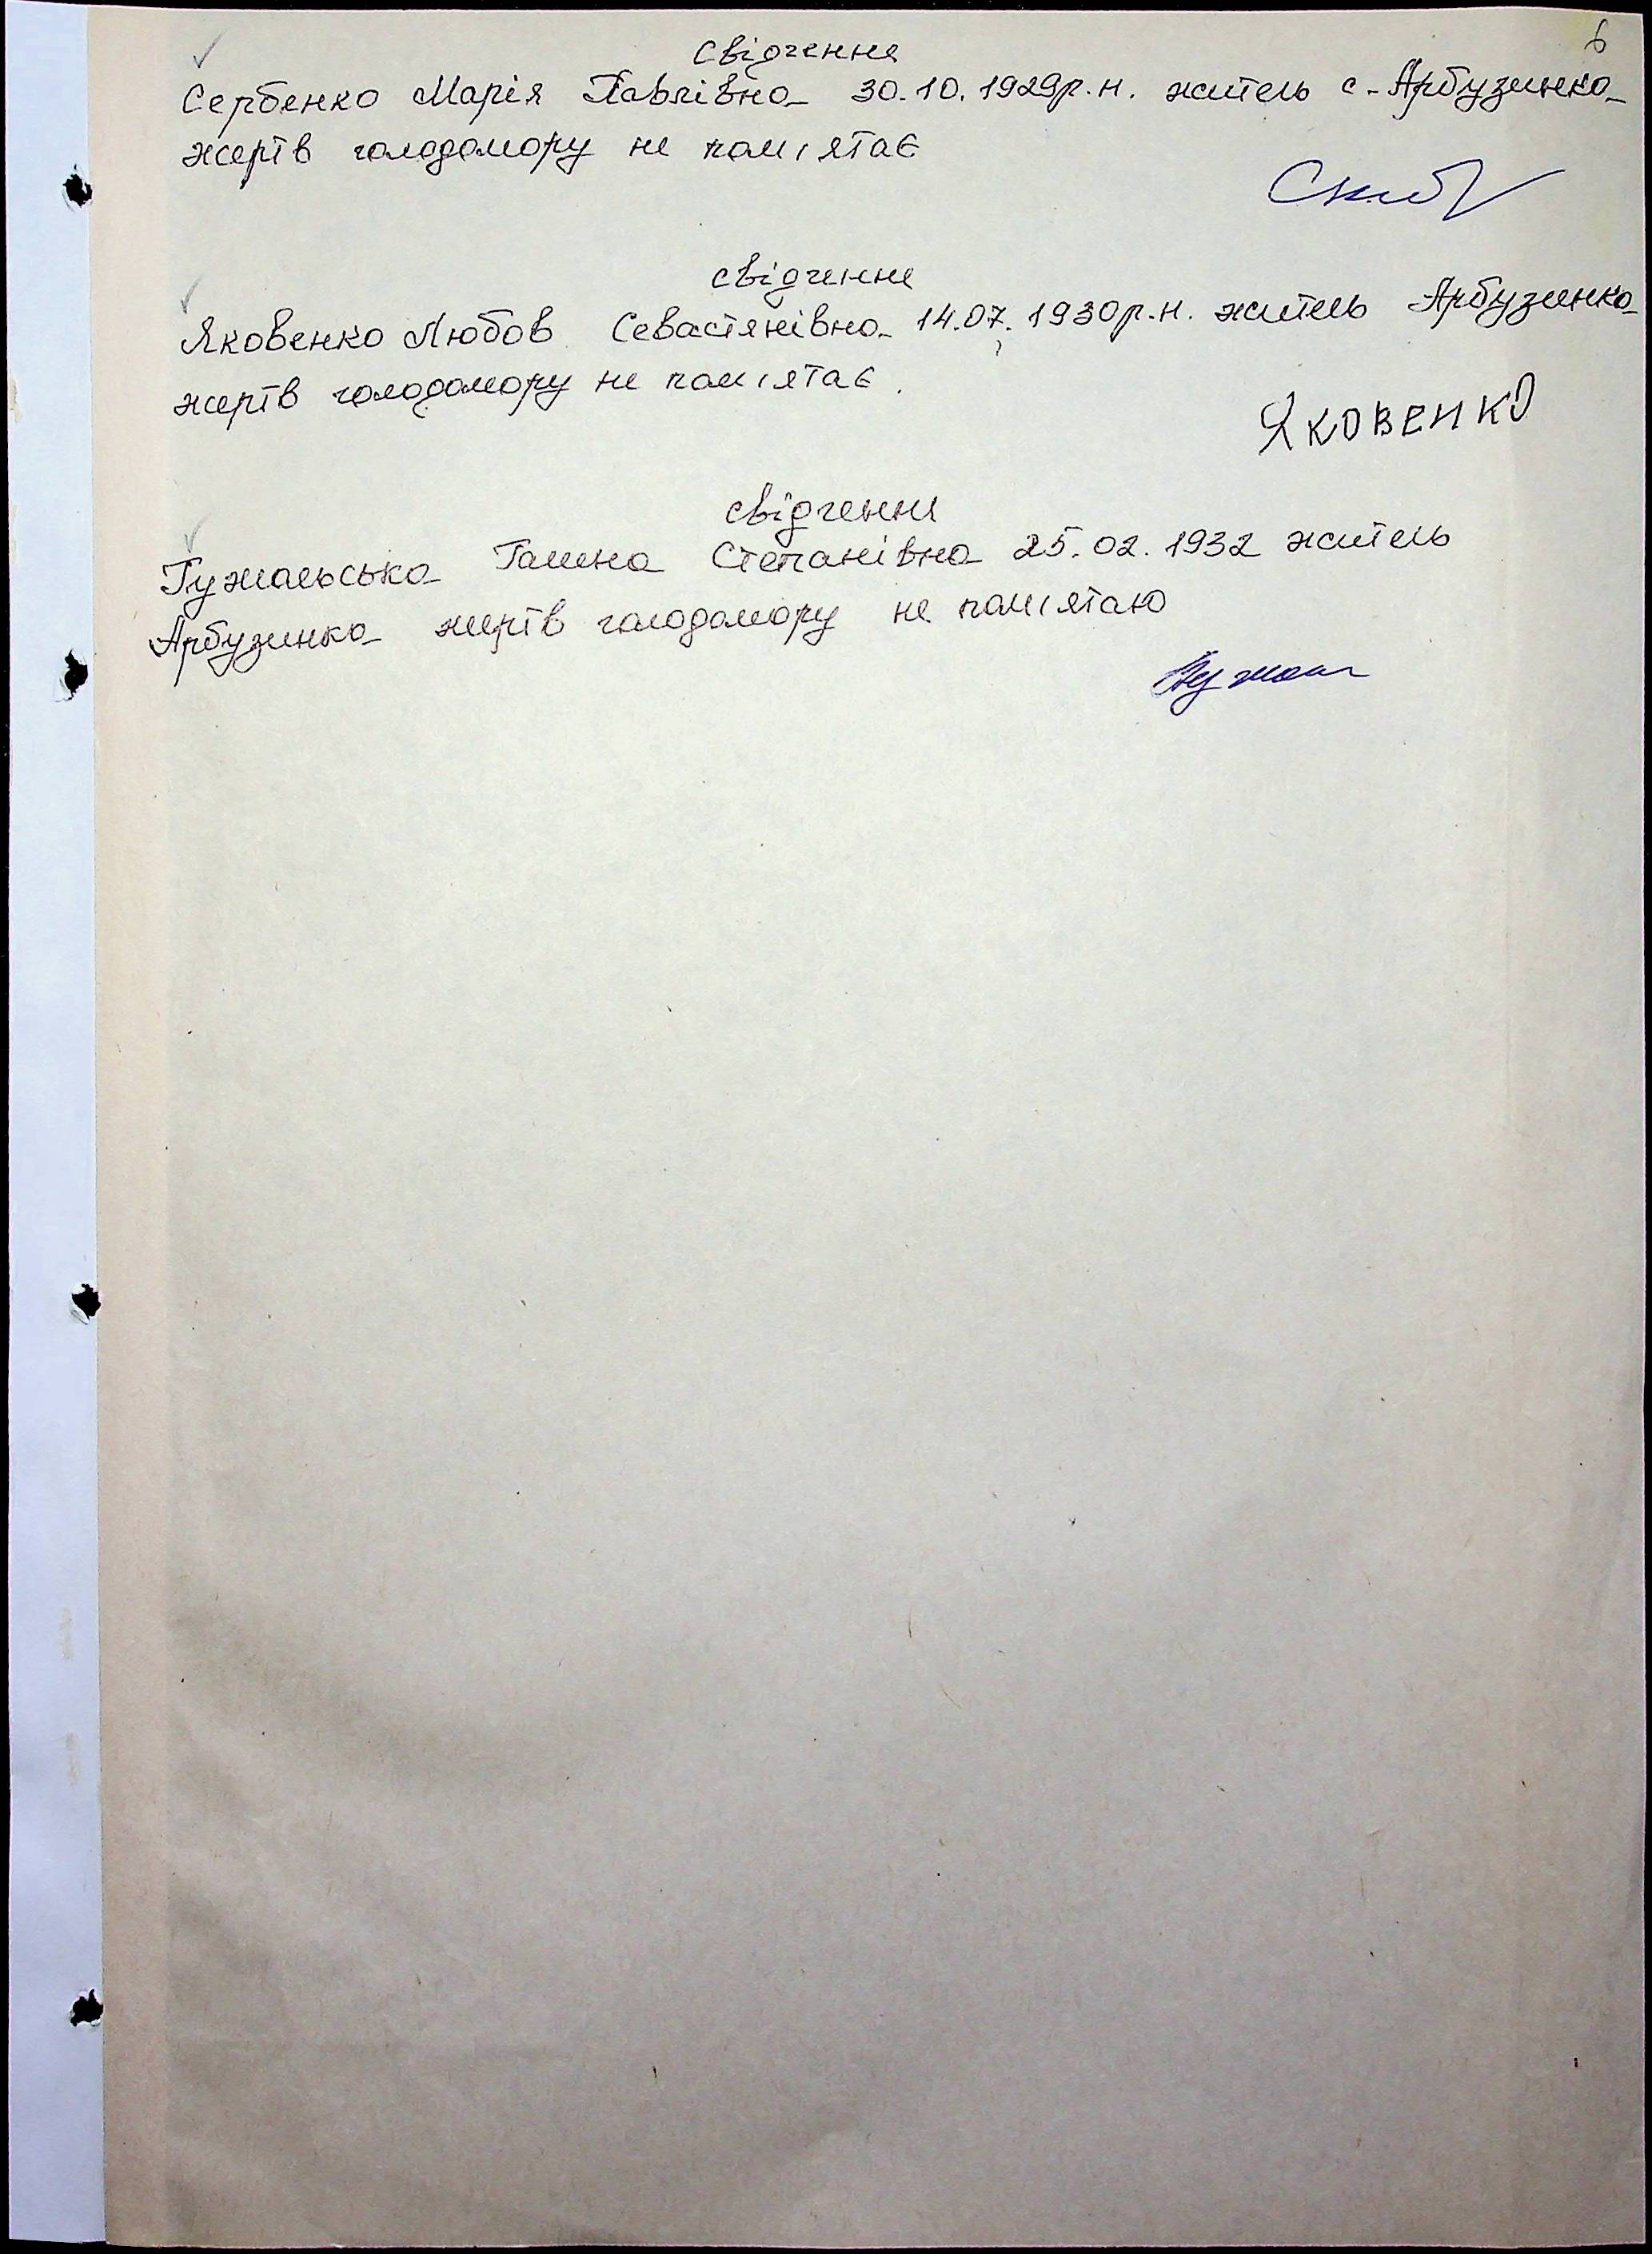 6
Свідчення
Сербенко Марія Павлівна 30.10.1929р.н. житель с. Арбузинка
жертв голодомору не пам'ятає
свідчення
Яковенко Любов Севастянівна 14.07.1930р.н. житель Арбузинка
жертв голодомору не пам'ятає.
ЯКОВЕНКО
свідчення
Гужальська Галина Степанівна 25.02.1932 житель
Арбузинка жертв голодомору не пам'ятаю